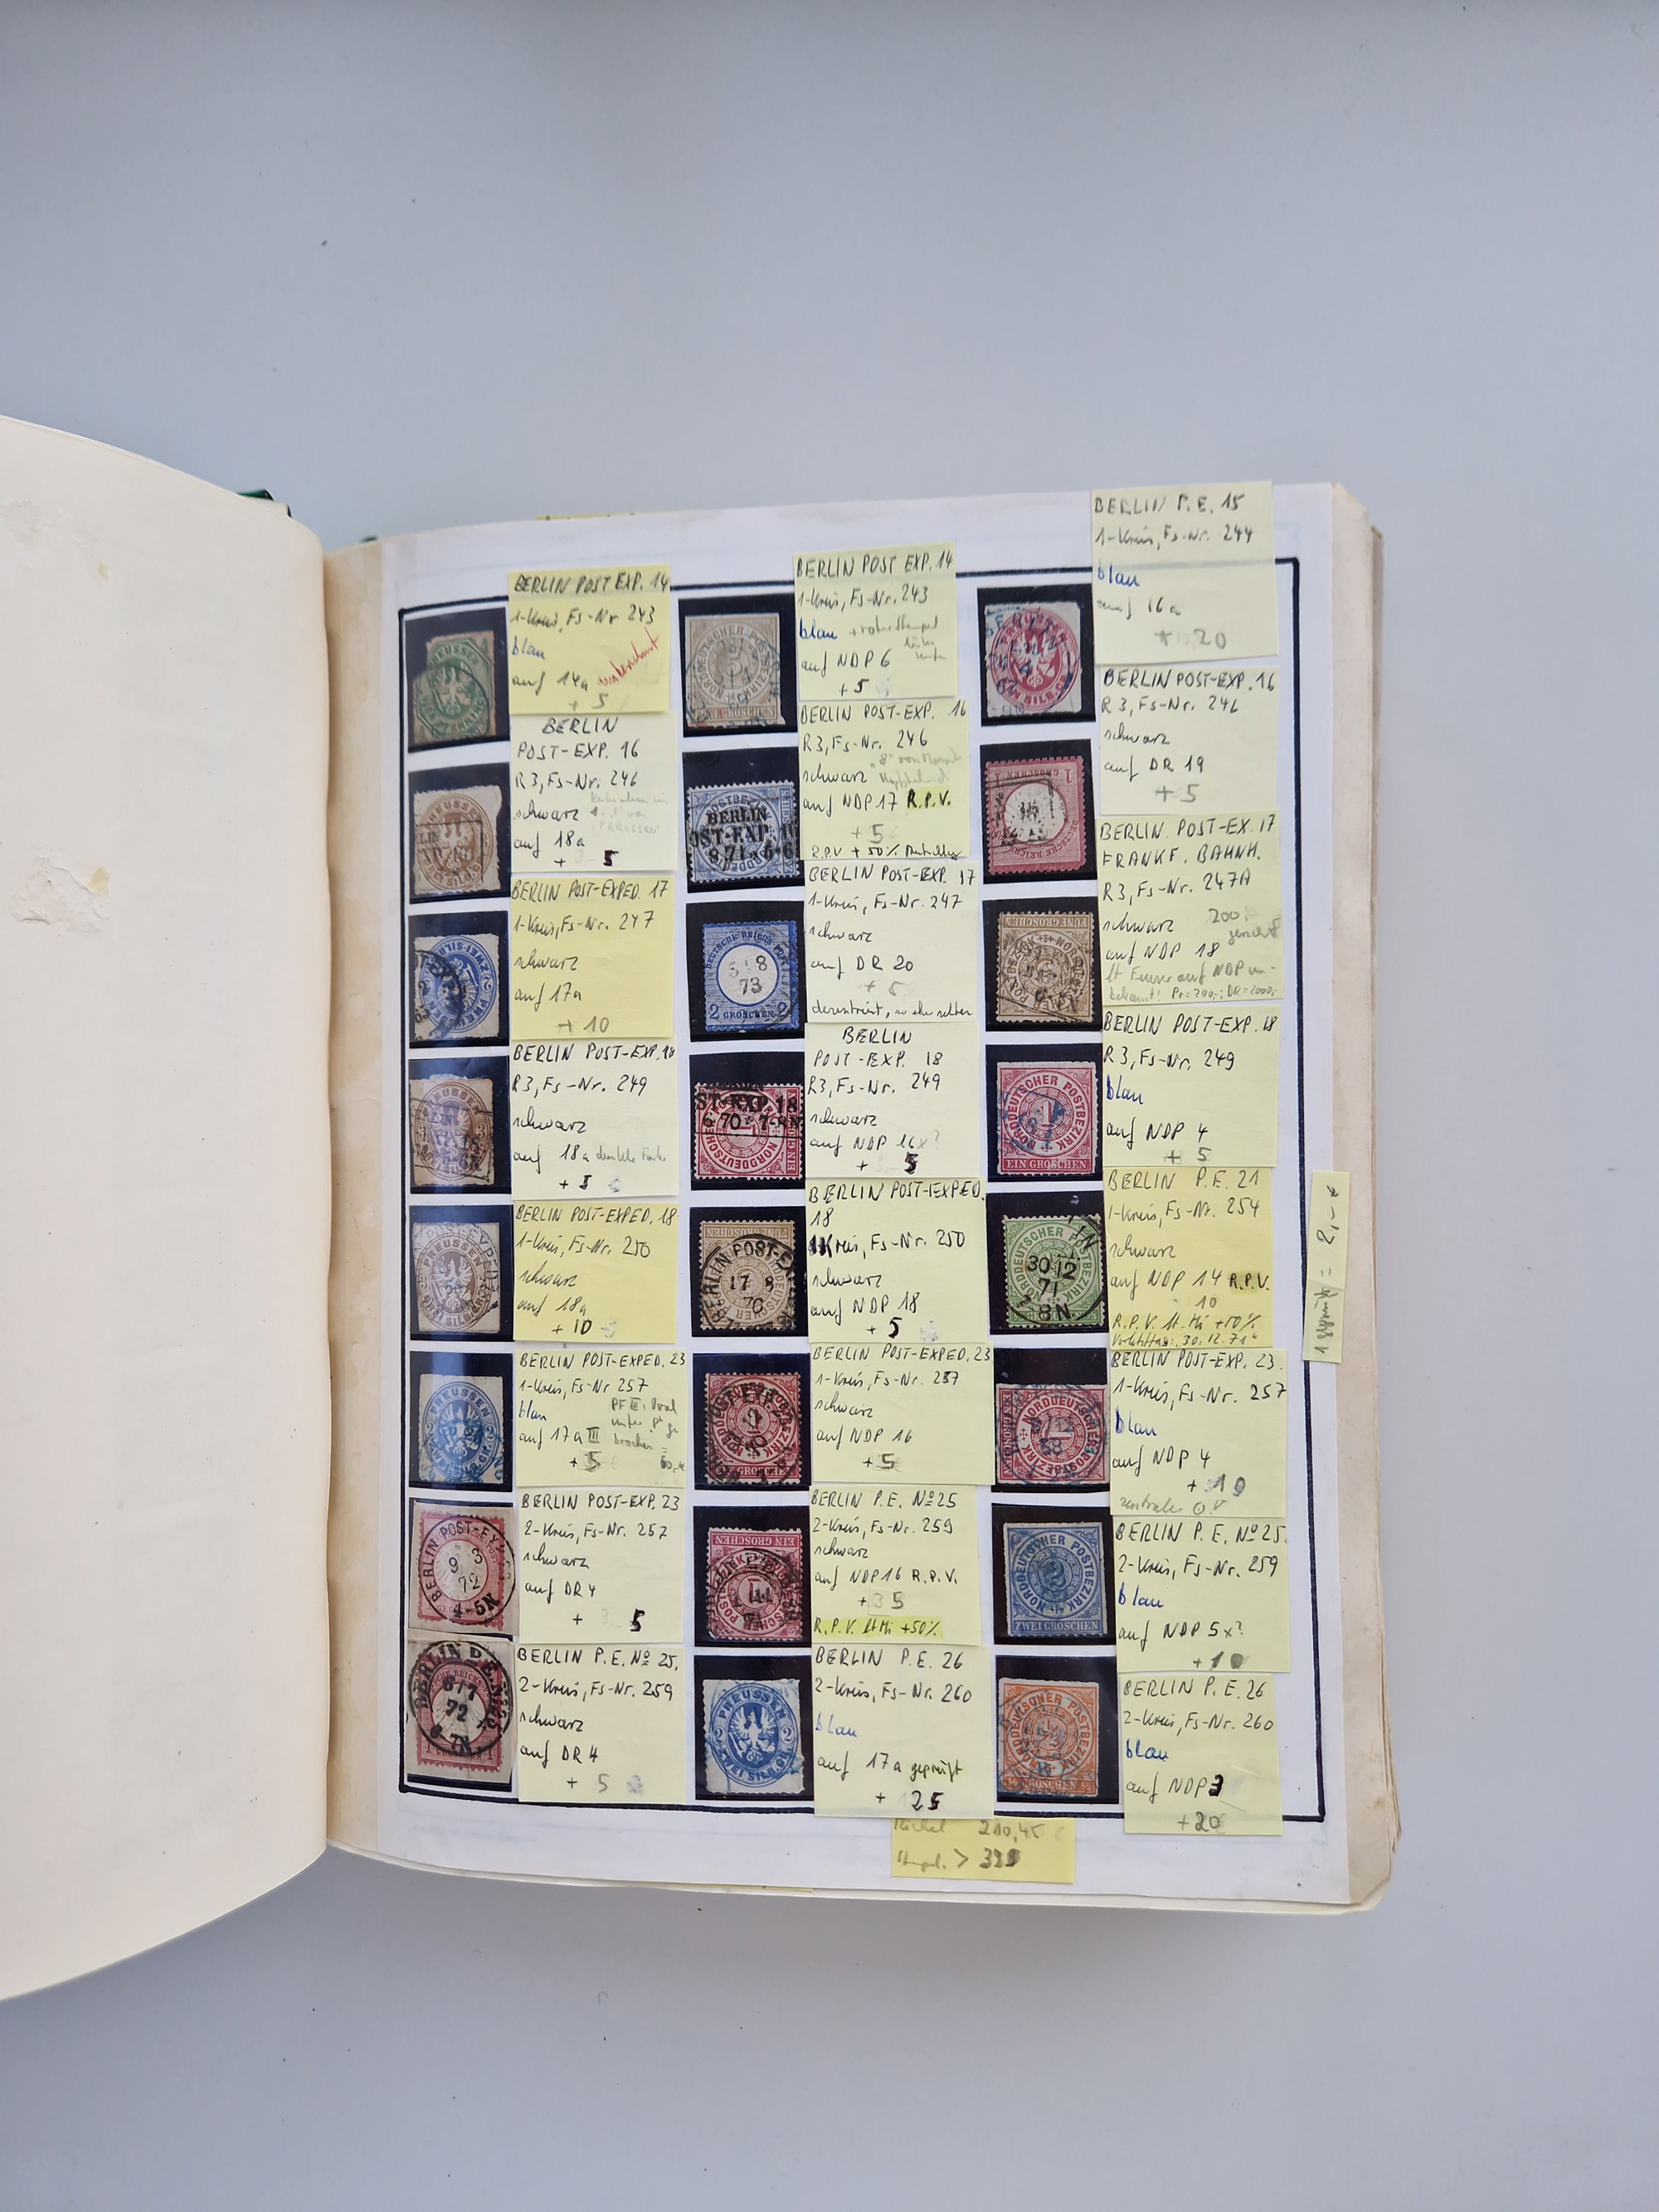 BERLIN POST EXP. 14
1-Kreis, Fs-Nr 243
blau
auf 14a
+ 5
BERLIN POST EXP. 14
1-Kreis, Fs-Nr. 243
blau
auf NDP 6
+ 5
BERLIN P. E. 15
1-Kreis, Fs-Nr. 244
blau
auf 16a
+ 20
BERLIN
POST-EXP. 16
R3, Fs-Nr. 246
schwarz
auf 18a
+ 5
BERLIN
OST-EXP. 16
8 71
BERLIN POST-EXP. 16
R3, Fs-Nr. 246
schwarz
auf NDP 17 R.P.V.
+ 5
R.P.V + 50%
BERLIN POST-EXP. 16
R3, Fs-Nr. 246
schwarz
auf DR 19
+ 5
BERLIN POST-EXPED. 17
1-Kreis, Fs-Nr. 247
schwarz
auf 17a
+ 10
DEUTSCHE REICHS POST
5 8
73
2 GROSCHEN 2
BERLIN POST-EXP. 17
1-Kreis, Fs-Nr. 247
schwarz
auf DR 20
+ 5
FÜNF GROSCHEN
BERLIN. POST-EX. 17
FRANKF. BAHNH.
R3, Fs-Nr. 247A
schwarz
auf NDP 18
BERLIN POST-EXP. 18
R3, Fs-Nr. 249
schwarz
auf 18a dunkle Farbe
+ 5
ST-EXP. 18
70
NORDDEUTSCHER
BERLIN
POST-EXP. 18
R3, Fs-Nr. 249
schwarz
auf NDP 16x?
+ 5
NORDDEUTSCHER POSTBEZIRK
1
EIN GROSCHEN
BERLIN POST-EXP. 18
R3, Fs-Nr. 249
blau
auf NDP 4
+ 5
BERLIN POST-EXPED. 18
1-Kreis, Fs-Nr. 250
schwarz
auf 18a
+ 10
BERLIN POST-EX
17 8
70
BERLIN POST-EXPED.
18
1Kreis, Fs-Nr. 250
schwarz
auf NDP 18
+ 5
NORDDEUTSCHER POSTBEZIRK
30 12
71
7-8N.
BERLIN P.E. 21
1-Kreis, Fs-Nr. 254
schwarz
auf NDP 14 R.P.V.
10
R.P.V. lt. Mi +50%
30.12.71
PREUSSEN
BERLIN POST-EXPED. 23
1-Kreis, Fs-Nr 257
blau
auf 17a III
+ 5
BERLIN POST-EXPED. 23
1-Kreis, Fs-Nr. 257
schwarz
auf NDP 16
+ 5
NORDDEUTSCHER
BERLIN POST-EXP. 23.
1-Kreis, Fs-Nr. 257
blau
auf NDP 4
+ 10
BERLIN POST-EX
9 3
72
4-5N
BERLIN POST-EXP. 23
2-Kreis, Fs-Nr. 257
schwarz
auf DR 4
+ 5
EIN GROSCHEN
BERLIN P.E. No 25
2-Kreis, Fs-Nr. 259
schwarz
auf NDP 16 R.P.V.
+ 5
R.P.V. lt Mi +50%
NORDDEUTSCHER POSTBEZIRK
ZWEI GROSCHEN
BERLIN P.E. No 25.
2-Kreis, Fs-Nr. 259
blau
auf NDP 5x?
+ 10
BERLIN P.E. N
8 7
72
BERLIN P.E. No 25.
2-Kreis, Fs-Nr. 259
schwarz
auf DR 4
+ 5
PREUSSEN
ZWEI SILB.GR.
BERLIN P.E. 26
2-Kreis, Fs-Nr. 260
blau
auf 17a geprüft
+ 25
NORDDEUTSCHER POSTBEZIRK
GROSCHEN
BERLIN P.E. 26
2-Kreis, Fs-Nr. 260
blau
auf NDP 3
+ 20
Michel 210,45
Stempel. >
= 2,- €